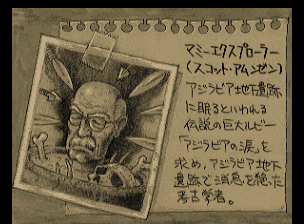 マミーエクスプローラー
(スコット・アムンゼン)
アジラビア地下遺跡
に眠るといわれる
伝説の巨大ルビー
「アジラビアの涙」を
求め、アジラビア地下
遺跡で消息を絶った
考古学者。